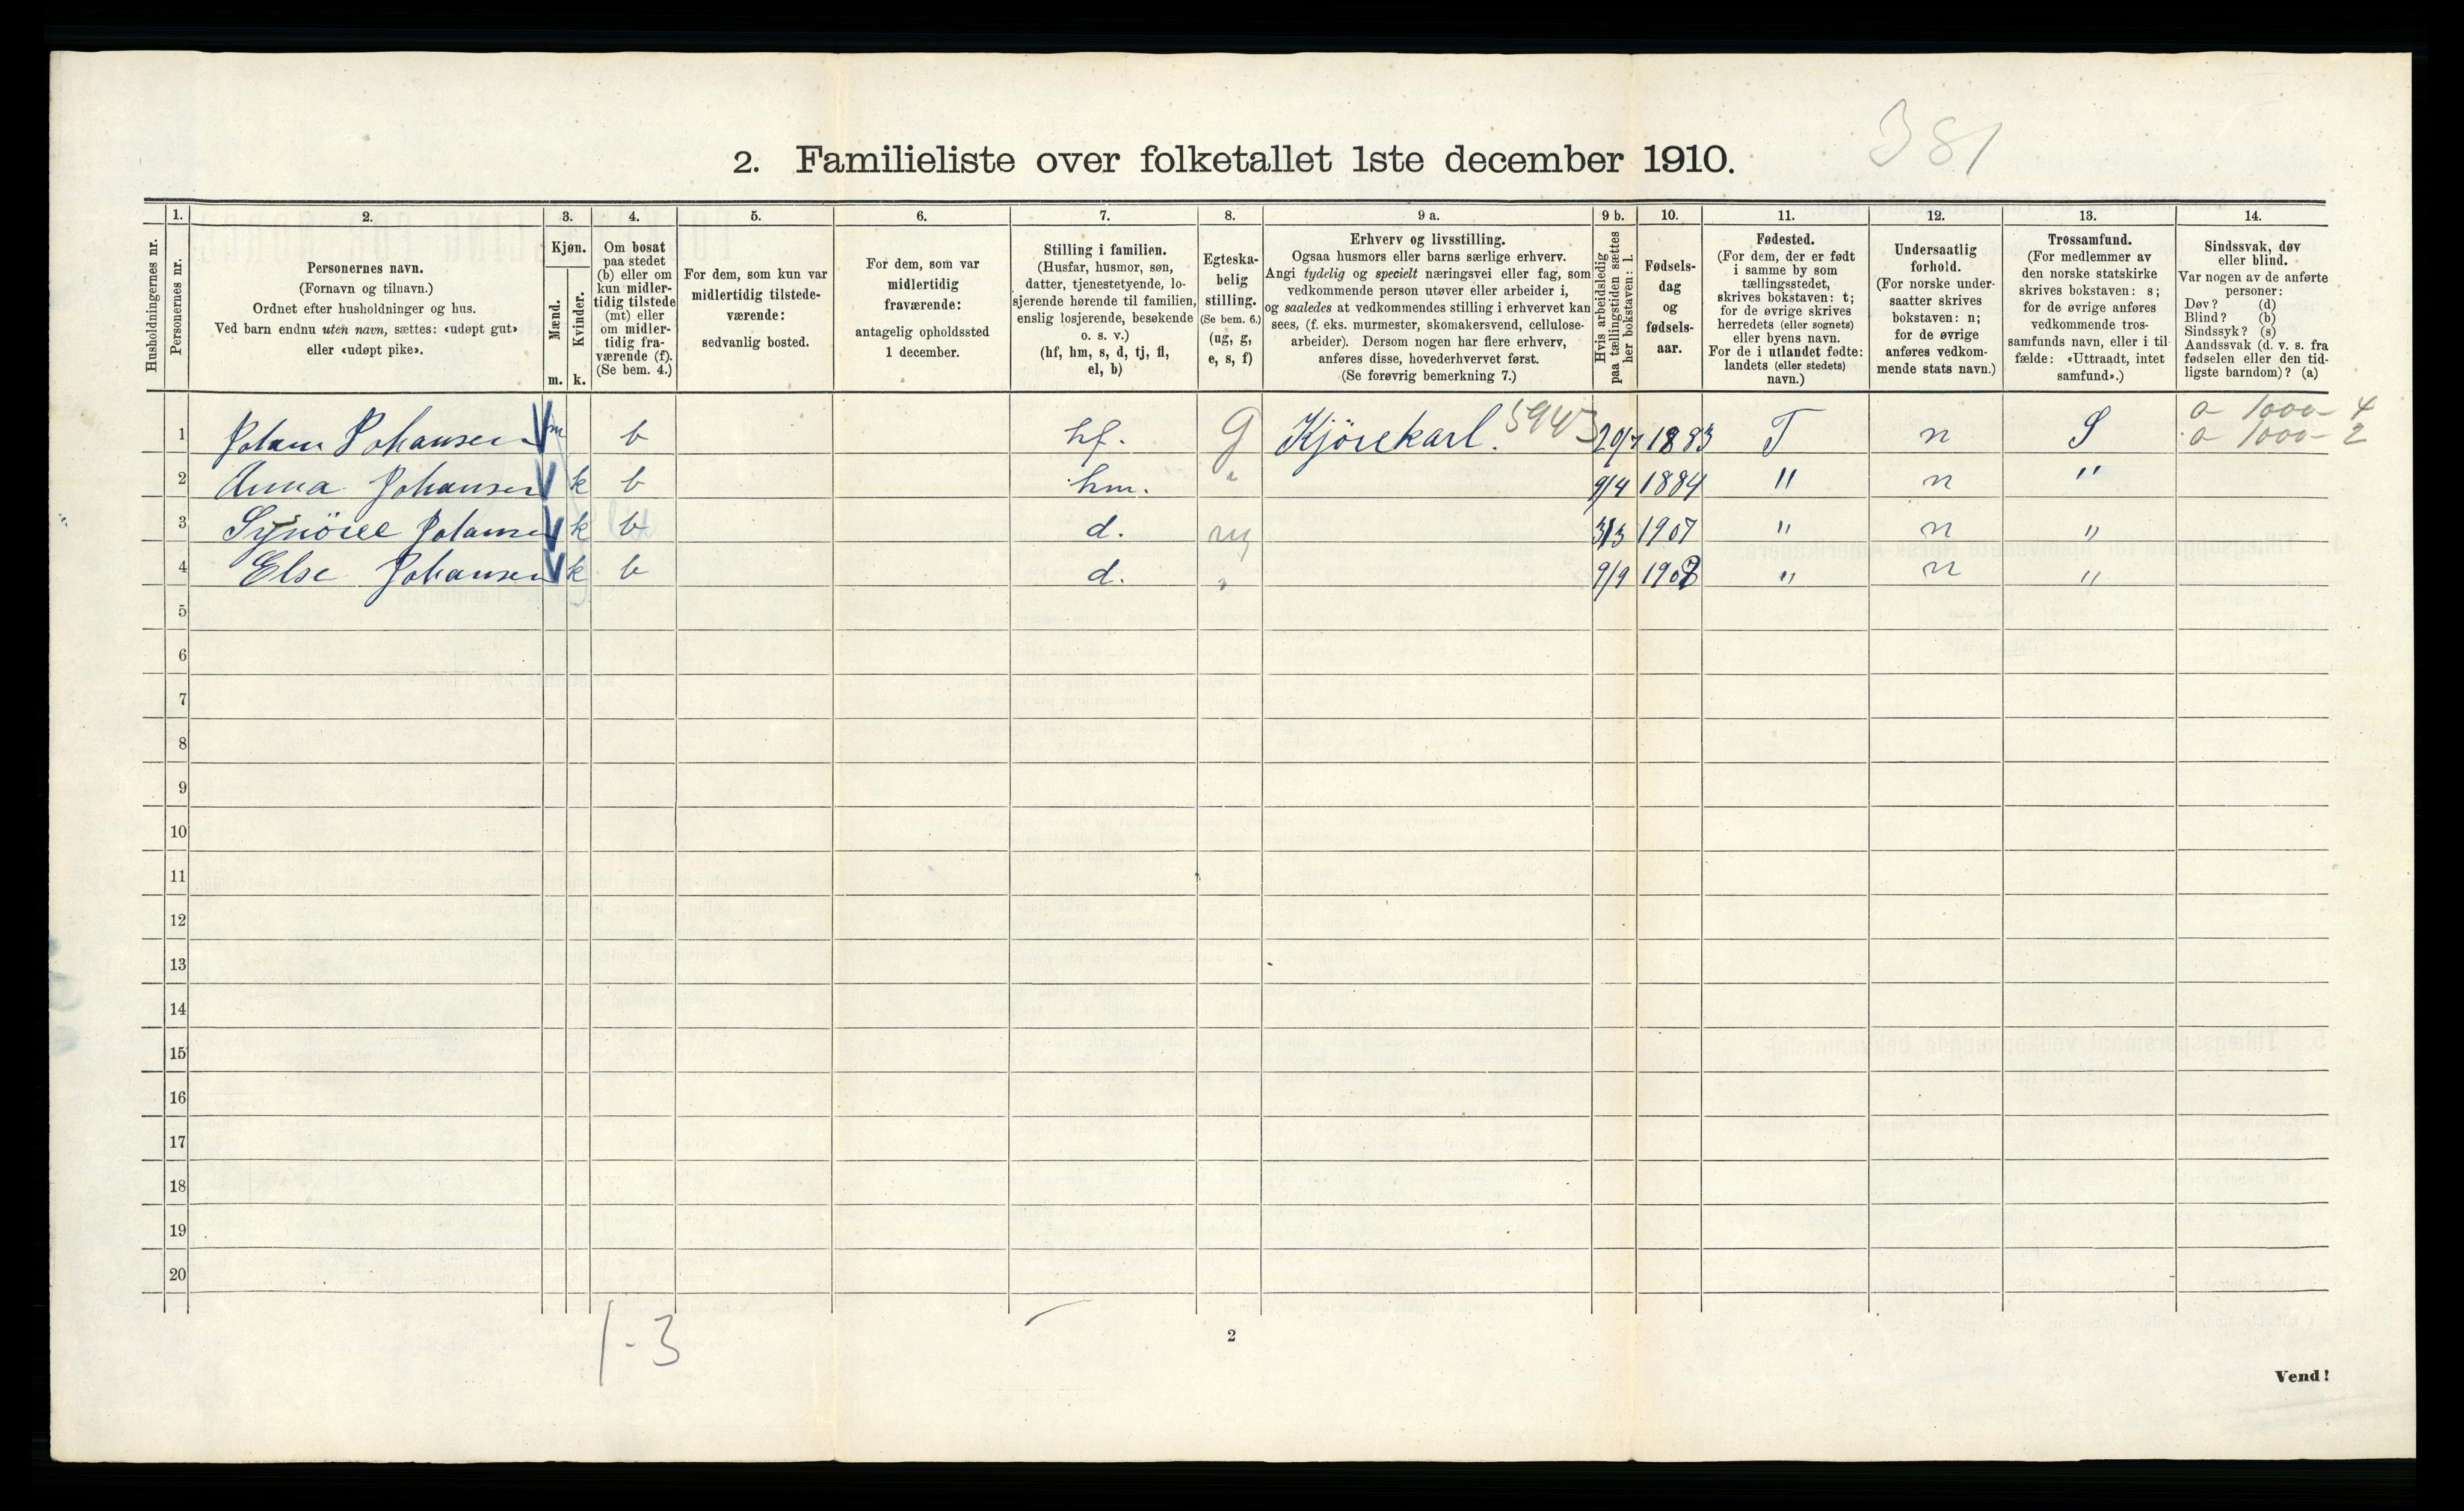 381
2. Familieliste over folketallet 1ste december 1910.
1. 2. 3. 4. 5. 6. 7. 8. 9 a. 9 b. 10. 11. 12. 13. 14.
Husholdningernes nr.
Personernes nr.
Personernes navn.
(Fornavn og tilnavn.)
Ordnet efter husholdninger og hus.
Ved barn endnu uten navn, sættes: «udøpt gut»
eller «udøpt pike».
Kjøn.
Mænd.
Kvinder.
m. k.
Om bosat
paa stedet
(b) eller om
kun midler-
tidig tilstede
(mt) eller
om midler-
tidig fra-
værende (f).
(Se bem. 4.)
For dem, som kun var
midlertidig tilstede-
værende:
sedvanlig bosted.
For dem, som var
midlertidig
fraværende:
antagelig opholdssted
1 december.
Stilling i familien.
(Husfar, husmor, søn,
datter, tjenestetyende, lo-
sjerende hørende til familien,
enslig losjerende, besøkende
o. s. v.)
(hf, hm, s, d, tj, fl,
el, b)
Egteska-
belig
stilling.
(Se bem. 6.)
(ug, g,
e, s, f)
Erhverv og livsstilling.
Ogsaa husmors eller barns særlige erhverv.
Angi tydelig og specielt næringsvei eller fag, som
vedkommende person utøver eller arbeider i,
og saaledes at vedkommendes stilling i erhvervet kan
sees, (f. eks. murmester, skomakersvend, cellulose-
arbeider). Dersom nogen har flere erhverv,
anføres disse, hovederhvervet først.
(Se forøvrig bemerkning 7.)
Hvis arbeidsledig
paa tællingstiden sættes
her bokstaven: l.
Fødsels-
dag
og
fødsels-
aar.
Fødested.
(For dem, der er født
i samme by som
tællingsstedet,
skrives bokstaven: t;
for de øvrige skrives
herredets (eller sognets)
eller byens navn.
For de i utlandet fødte:
landets (eller stedets)
navn.)
Undersaatlig
forhold.
(For norske under-
saatter skrives
bokstaven: n;
for de øvrige
anføres vedkom-
mende stats navn.)
Trossamfund.
(For medlemmer av
den norske statskirke
skrives bokstaven: s;
for de øvrige anføres
vedkommende tros-
samfunds navn, eller i til-
fælde: «Uttraadt, intet
samfund».)
Sindssvak, døv
eller blind.
Var nogen av de anførte
personer:
Døv? (d)
Blind? (b)
Sindssyk? (s)
Aandssvak (d. v. s. fra
fødselen eller den tid-
ligste barndom)? (a)
0 - 1000 - 4
1 Johan Johansen m b hf. g Kjörekarl. 5943 29/7 1883 T n S 0 - 1000 - 2
2 Anna Johansen k b hm. " 9/4 1884 " n "
3 Synöve Johansen k b d. ug 31/3 1907 " n "
4 Else Johansen k b d. " 9/9 1908 " n "
5
6
7
8
9
10
11
12
13
14
15
16
17
18
19
20
1 - 3
2
Vend!